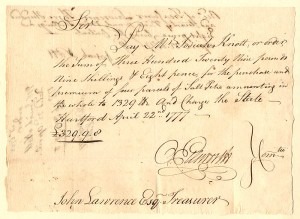 Sir
Pay Mr. Knott, or order
the Sum of Three Hundred Twenty Nine pounds
Nine Shillings & Eight pence for the purchase and
premium of four parcels of Salt Petre amounting in
the whole to 1329 lb. And Charge the State
Hartford April 22d 1777
£329.9.8
Comtee
John Lawrence Esqr. Treasurer